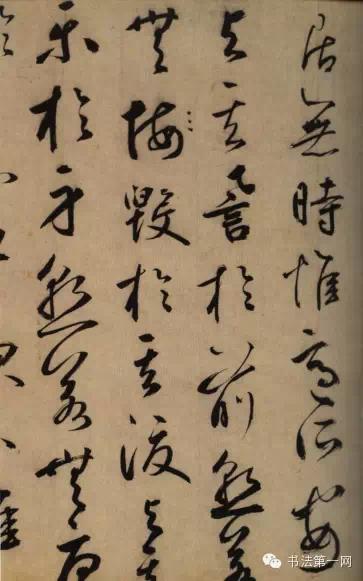 居無時惟適所安
與其譽於前孰若
無悔毀於其後與其
樂於身孰若無
书法第一网